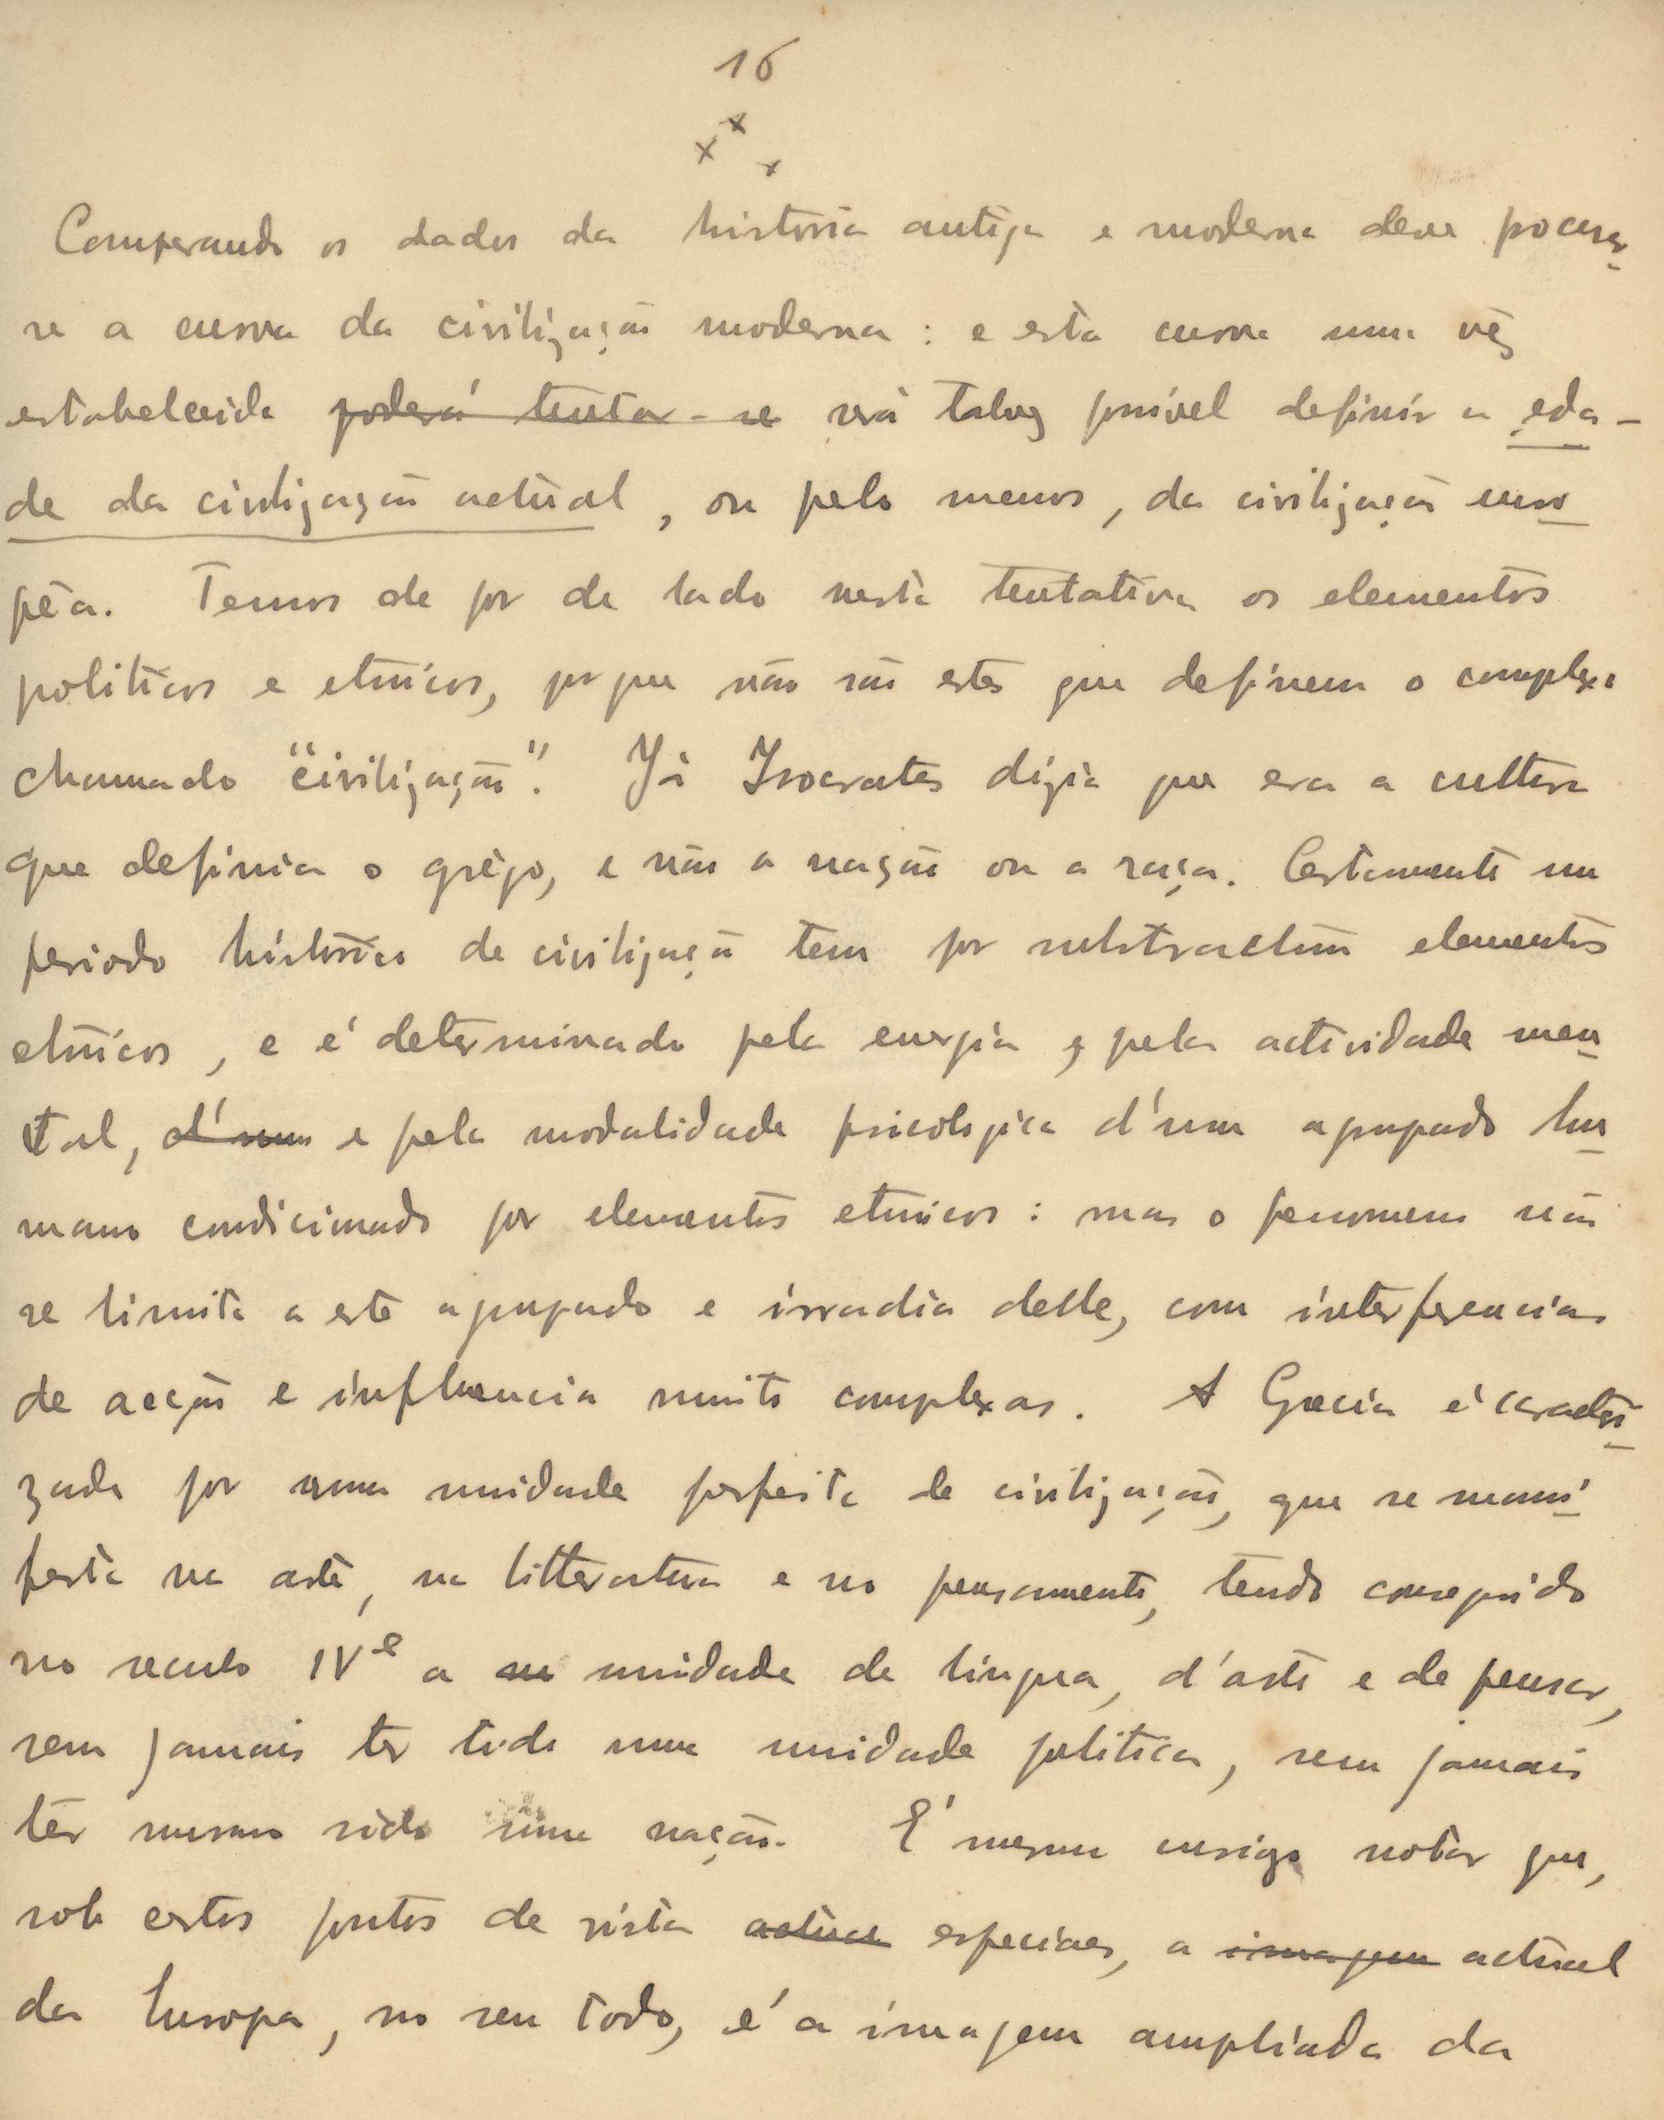 16
x x x
Comparando os dados da historia antiga e moderna deve pocurar-
se a curva da civilização moderna : e esta curva uma vêz
estabelecida poderá tentar-se será talvez possivel definir a eda-
de da civilização actual, ou pelo menos, da civilização euro
pêa. Temos de por de lado nesta tentativa os elementos
politicos e etnicos, porque não são estes que definem o complexo
chamado "civilização". Já Isocrates dizia que era a cultura
que definia o grêgo, e não a nação ou a raça. Certamente um
periodo historico de civilização tem por substractum elementos
etnicos, e é determinado pela energia e pela actividade men
tal, d'um e pela modalidade psicologica d'um agrupado hu
mano condicionado por elementos etnicos : mas o fenomeno não
se limita a este agrupado e irradia delle, com interferencias
de acção e influencia muito complexas. A Grecia é caracteri
zada por uma unidade perfeita de civilização, que se mani
festa na arte, na litteratura e no pensamento, tendo conseguido
no seculo IVº a unidade de lingua, d'arte e de pensar,
sem jamais ter tido uma unidade politica, sem jamais
ter mesmo sido uma nação. É mesmo curioso notar que,
sob estes pontos de vista actual especiaes, a imagem actual
da Europa, no seu todo, é a imagem ampliada da